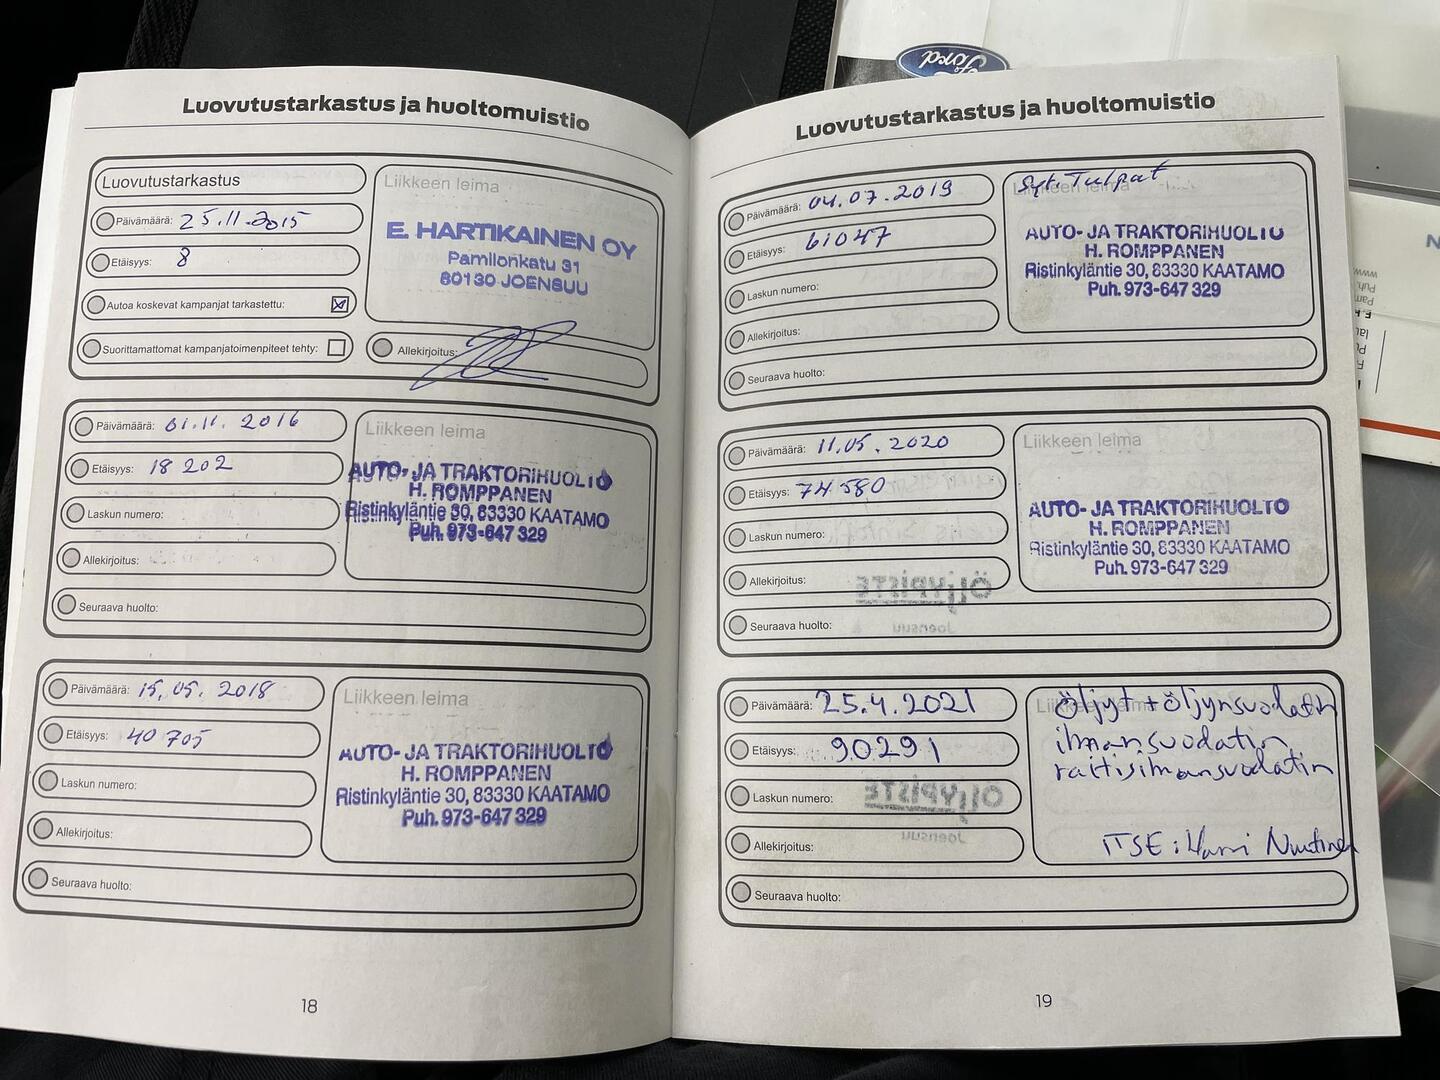 Ford
Luovutustarkastus ja huoltomuistio
Luovutustarkastus
Päivämäärä: 25.11.2015
Etäisyys: 8
Autoa koskevat kampanjat tarkastettu:
Suorittamattomat kampanjatoimenpiteet tehty:
Liikkeen leima
E. HARTIKAINEN OY
Pamilonkatu 31
80130 JOENSUU
Allekirjoitus:
Päivämäärä: 01.11. 2016
Etäisyys: 18 202
Laskun numero:
Allekirjoitus:
Seuraava huolto:
Liikkeen leima
AUTO- JA TRAKTORIHUOLTO
H. ROMPPANEN
Ristinkyläntie 30, 83330 KAATAMO
Puh. 973-647 329
Päivämäärä: 15.05. 2018
Etäisyys: 40 705
Laskun numero:
Allekirjoitus:
Seuraava huolto:
Liikkeen leima
AUTO- JA TRAKTORIHUOLTO
H. ROMPPANEN
Ristinkyläntie 30, 83330 KAATAMO
Puh. 973-647 329
18
Luovutustarkastus ja huoltomuistio
Päivämäärä: 04.07.2019
Etäisyys: 61047
Laskun numero:
Allekirjoitus:
Seuraava huolto:
Liikkeen leima
Syt. Tulpat
AUTO- JA TRAKTORIHUOLTO
H. ROMPPANEN
Ristinkyläntie 30, 83330 KAATAMO
Puh. 973-647 329
Päivämäärä: 11.05.2020
Etäisyys: 74 580
Laskun numero:
Allekirjoitus:
Seuraava huolto:
Liikkeen leima
AUTO- JA TRAKTORIHUOLTO
H. ROMPPANEN
Ristinkyläntie 30, 83330 KAATAMO
Puh. 973-647 329
ÖLJYPISTE
Joensuu
Päivämäärä: 25.4.2021
Etäisyys: 90291
Laskun numero:
Allekirjoitus:
Seuraava huolto:
Liikkeen leima
Öljyt + öljynsuodatin
ilmansuodatin
raitisilmansuodatin
ITSE: Harri Nuutinen
ÖLJYPISTE
Joensuu
19